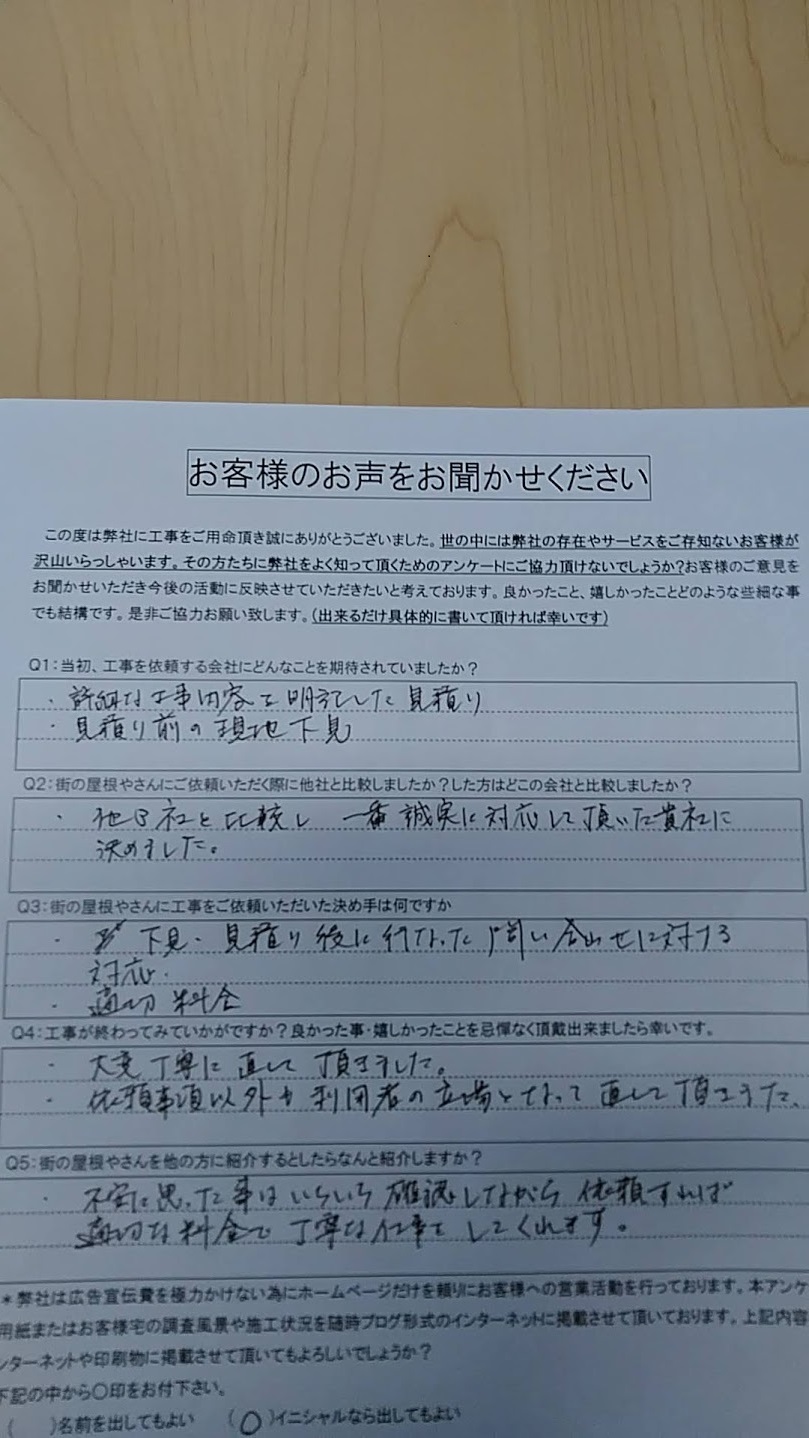 お客様のお声をお聞かせください
この度は弊社に工事をご用命頂き誠にありがとうございました。世の中には弊社の存在やサービスをご存知ないお客様が
沢山いらっしゃいます。その方たちに弊社をよく知って頂くためのアンケートにご協力頂けないでしょうか?お客様のご意見を
お聞かせいただき今後の活動に反映させていただきたいと考えております。良かったこと、嬉しかったことどのような些細な事
でも結構です。是非ご協力お願い致します。(出来るだけ具体的に書いて頂ければ幸いです)
Q1:当初、工事を依頼する会社にどんなことを期待されていましたか?
・詳細な工事内容を明記した見積り
・見積り前の現地下見
Q2:街の屋根やさんにご依頼いただく際に他社と比較しましたか?した方はどこの会社と比較しましたか?
・他3社と比較し 一番誠実に対応して頂いた貴社に
決めました。
Q3:街の屋根やさんに工事をご依頼いただいた決め手は何ですか
・下見・見積り後に行なった問い合わせに対する
対応.
・適切料金
Q4:工事が終わってみていかがですか?良かった事・嬉しかったことを忌憚なく頂戴出来ましたら幸いです。
・大変丁寧に直して頂きました。
・依頼事項以外も利用者の立場となって直して頂きました、
Q5:街の屋根やさんを他の方に紹介するとしたらなんと紹介しますか?
・不安に思った事はいちいち確認しながら依頼すれば
適切な料金で丁寧な仕事をしてくれます。
*弊社は広告宣伝費を極力かけない為にホームページだけを頼りにお客様への営業活動を行っております。本アンケ
用紙またはお客様宅の調査風景や施工状況を随時ブログ形式のインターネットに掲載させて頂いております。上記内容
ンターネットや印刷物に掲載させて頂いてもよろしいでしょうか?
下記の中から〇印をお付下さい。
( )名前を出してもよい (〇)イニシャルなら出してもよい